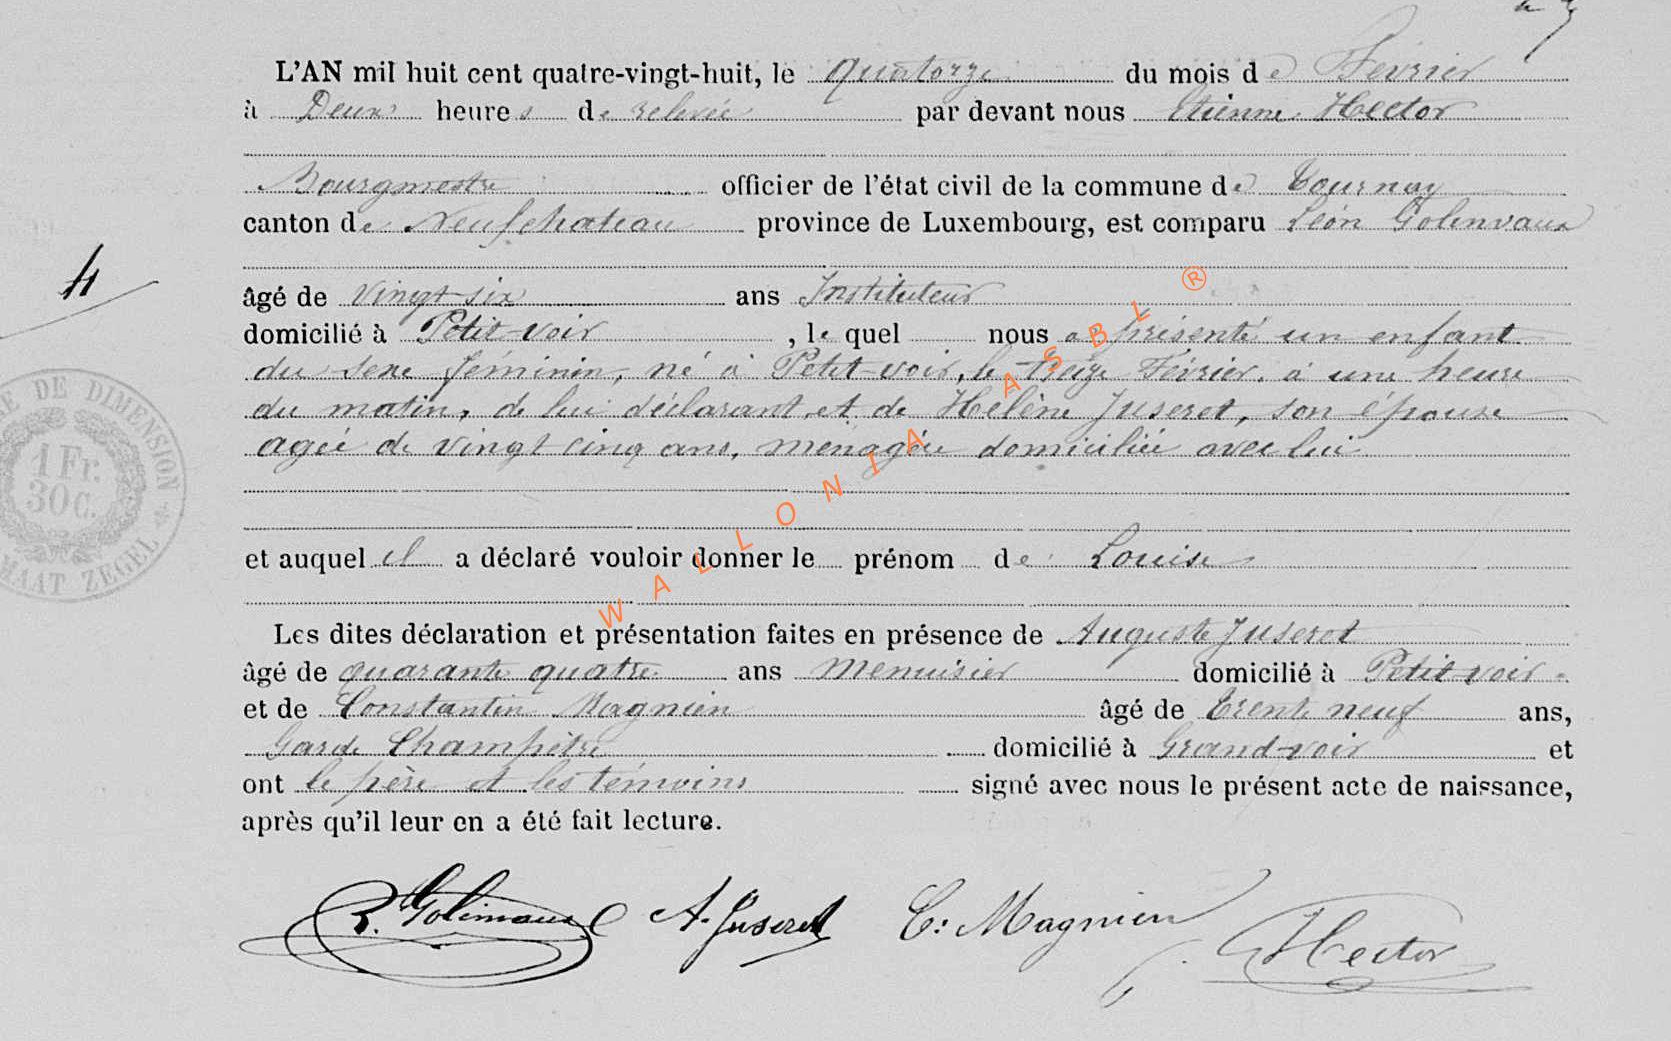 L'AN mil huit cent quatre-vingt-huit, le quatorze du mois de Février
à Deux heures de relevée par devant nous Etienne Hector
Bourgmestre officier de l'état civil de la commune de Tournay
canton de Neufchateau province de Luxembourg, est comparu Léon Golinvaux
4
âgé de vingt-six ans Instituteur
domicilié à Petit-voir, le quel nous a présenté un enfant
du sexe féminin, né à Petit-voir, le treize Février, à une heure
du matin, de lui déclarant et de Hélène Juseret, son épouse
agée de vingt cinq ans, ménagère domiciliée avec lui
et auquel il a déclaré vouloir donner le prénom de Louise
Les dites déclaration et présentation faites en présence de Auguste Juseret
âgé de quarante quatre ans menuisier domicilié à Petit-voir
et de Constantin Magnien âgé de Trente neuf ans,
Garde Champêtre domicilié à Grand-voir et
ont le père et les témoins signé avec nous le présent acte de naissance,
après qu'il leur en a été fait lecture.
Golinvaux A. Juseret C: Magnien
Hector
E DE DIMENSION
1 Fr.
30 C.
MAAT ZEGEL
WALLONIA ASBL ®